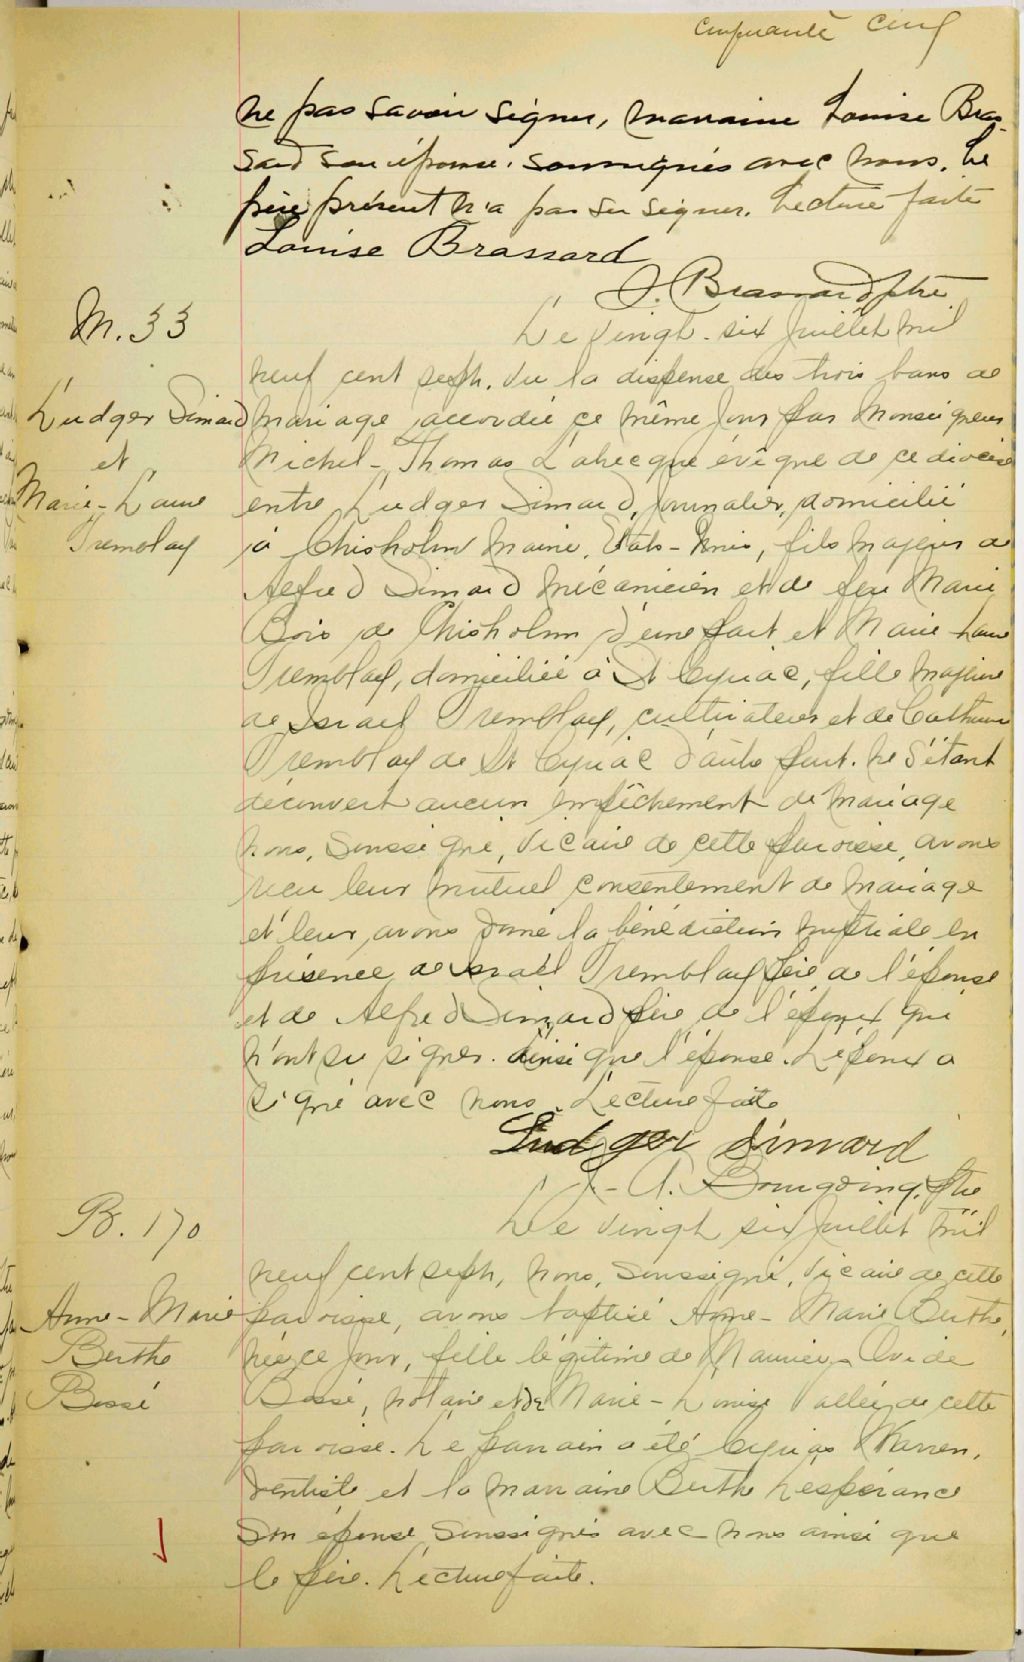 cinquante cinq
ne pas savoir signer, marraine Louise Bras-
sard son épouse. soussignés avec nous. Le
père présent n'a pas su signer. Lecture faite
Louise Brassard
J. Brassard ptre
M. 33
Ludger Simard
et
Marie-Laure
Tremblay
Le vingt-six Juillet mil
neuf cent sept. Vu la dispense des trois bans de
mariage accordée ce même jour par Monseigneur
Michel-Thomas Labrecque évêque de ce diocèse
entre Ludger Simard, Journalier, domicilié
à Chisholm Maine, Etats-Unis, fils majeur de
Alfred Simard mécanicien et de feu Marie
Bois de Chisholm d'une part et Marie-Laure
Tremblay, domiciliée à St Cyriac, fille majeure
de Israel Tremblay, cultivateur et de
Tremblay de St Cyriac d'autre part. Ne s'étant
découvert aucun empêchement de mariage
nous, Soussigné, Vicaire de cette paroisse, avons
reçu leur mutuel consentement de mariage
et leur avons donné la bénédiction nuptiale en
présence de Israël Tremblay père de l'épouse
et de Alfred Simard père de l'époux qui
n'ont su signer. ainsi que l'épouse. L'époux a
signé avec nous. Lecture faite
Ludger Simard
J.-A. Bourgoing, ptre
B. 170
Anne-Marie
Berthe
Bossé
Le vingt six Juillet mil
neuf cent sept, nous, soussigné, Vicaire de cette
paroisse, avons baptisé Anne-Marie Berthe,
née ce jour, fille légitime de Ovide
Bossé, notaire et de Marie-Louise Vallée de cette
paroisse. Le parrain a été Cyrias Warren,
dentiste et la marraine Berthe Lespérance
son épouse soussignés avec nous ainsi que
le père. Lecture faite.